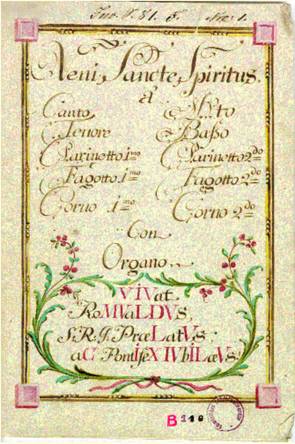 Veni Sancte Spiritus.
à
Canto Alto
Tenore Baßo
Clarinetto 1mo Clarinetto 2do
Fagotto 1mo Fagotto 2do
Corno 1mo Corno 2do
Con
Organo.
VIVat
RoMVaLDVS
S. R. J. PræLatVs
aC PontIfeX IVbILæVs.
B